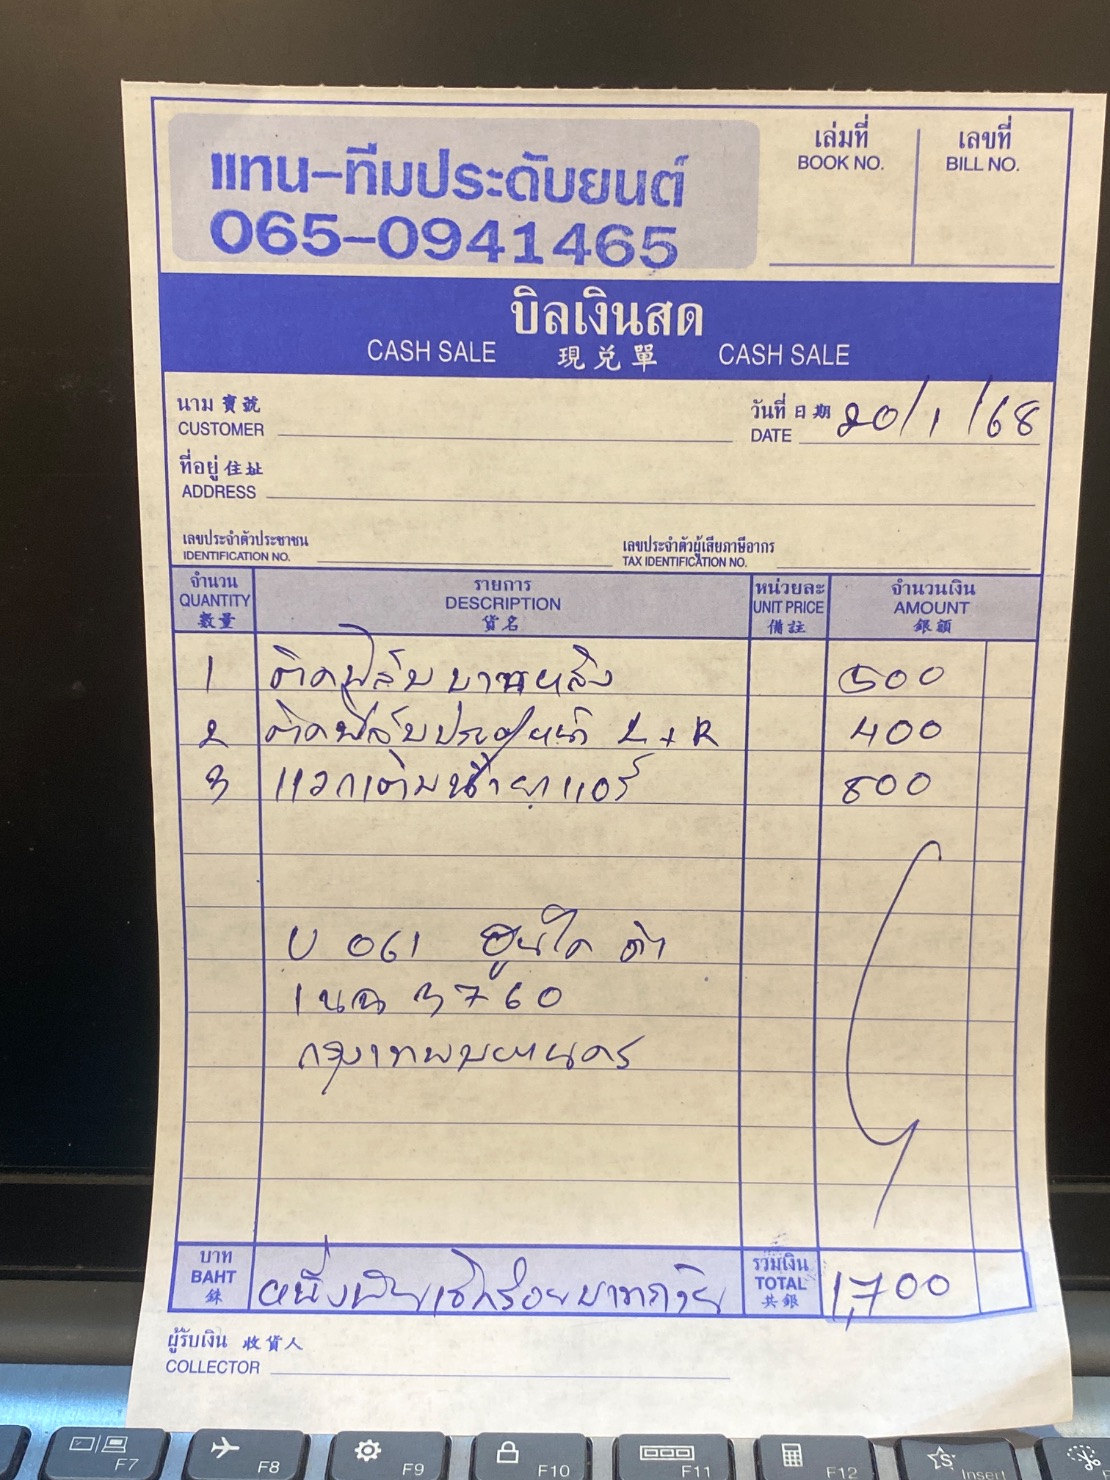 แทน-ทีมประดับยนต์
065-0941465
เล่มที่ เลขที่
BOOK NO. BILL NO.
บิลเงินสด
CASH SALE 現兌單 CASH SALE
นาม 寶號 วันที่ 日期 20/1/68
CUSTOMER DATE
ที่อยู่ 住址
ADDRESS
เลขประจำตัวประชาชน เลขประจำตัวผู้เสียภาษีอากร
IDENTIFICATION NO. TAX IDENTIFICATION NO.
จำนวน รายการ หน่วยละ จำนวนเงิน
QUANTITY DESCRIPTION UNIT PRICE AMOUNT
數量 貨名 備註 銀額
1 ติดฟิล์ม บานหลัง 500
2 ติดฟิล์มประตูหน้า L+R 400
3 แวคเติมน้ำยาแอร์ 800
U 061 ฮุนได ดำ
1นฉ 3760
กรุงเทพมหานคร
บาท รวมเงิน
BAHT หนึ่งพันเจ็ดร้อยบาทถ้วน TOTAL 1,700
銖 共銀
ผู้รับเงิน 收貨人
COLLECTOR
F7 F8 F9 F10 F11 F12 Insert